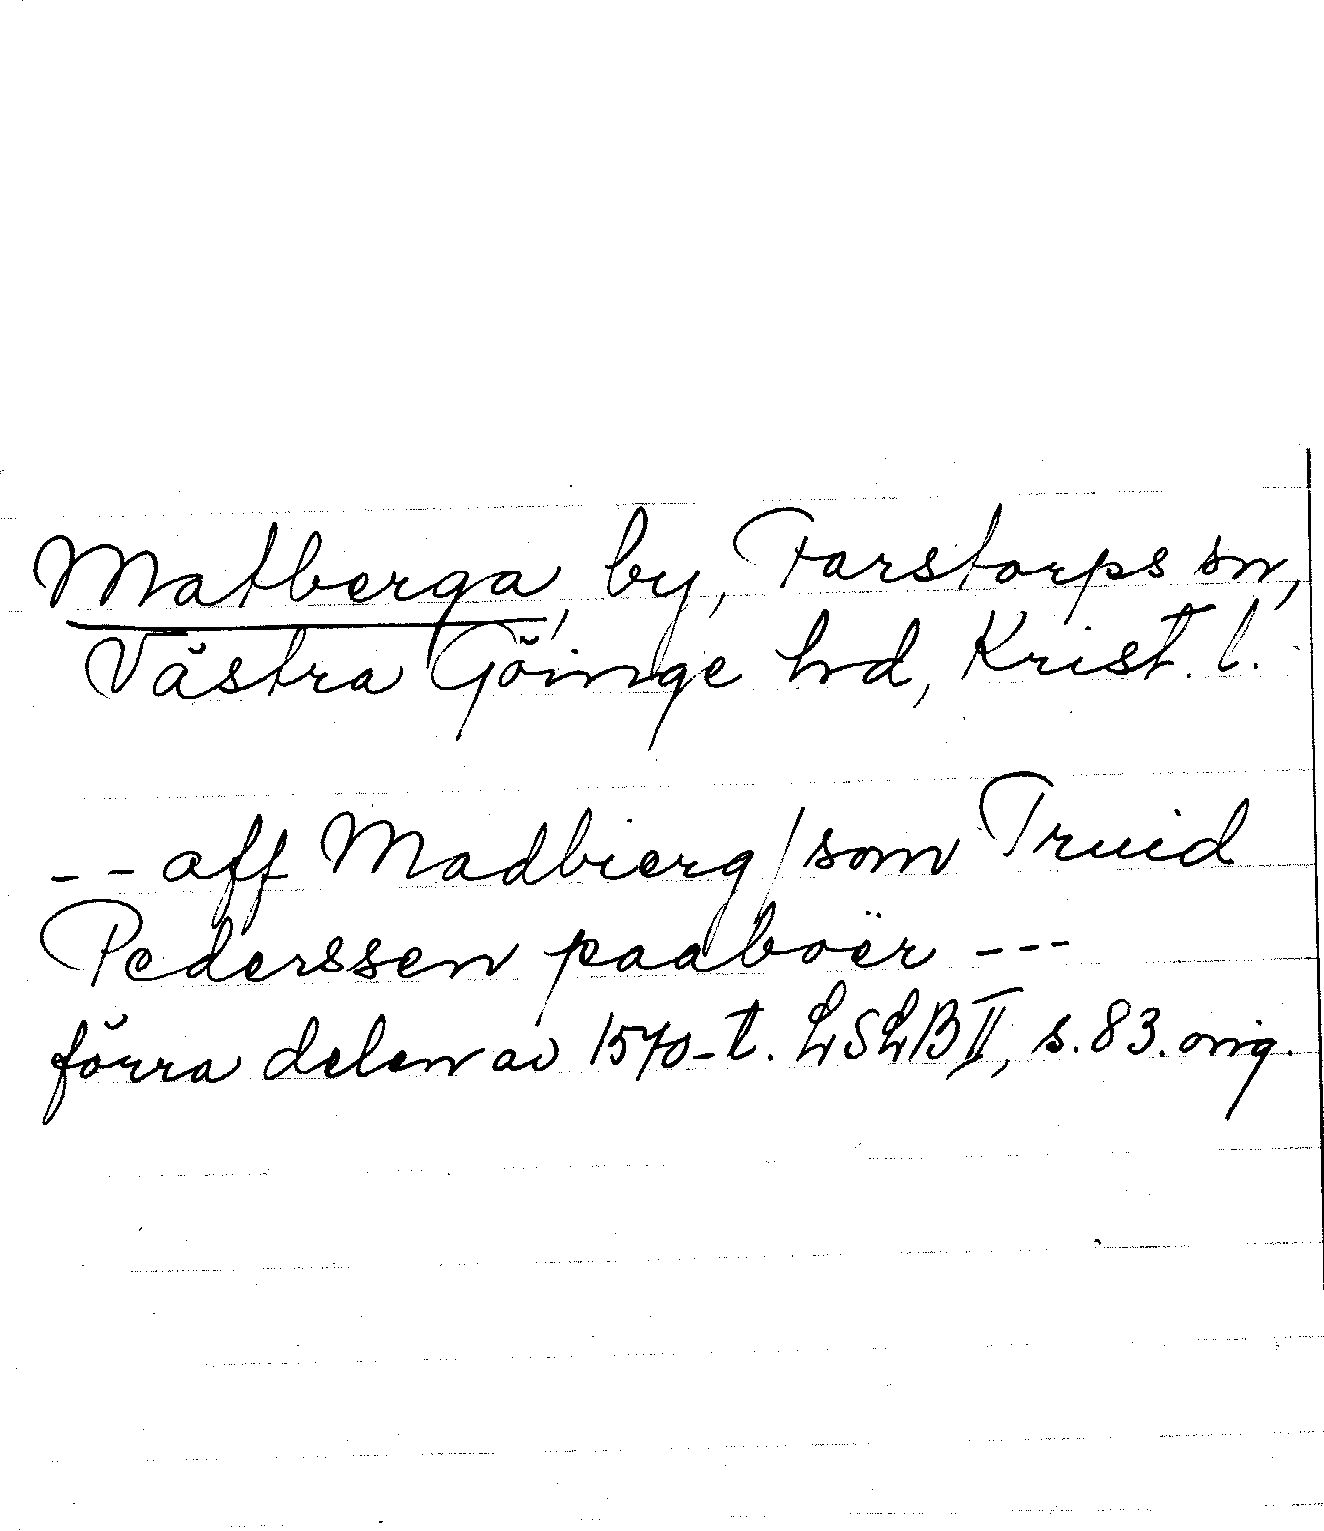 Matberga, by, Farstorps sn,
Västra Göinge hd, Krist. l.
-- aff Madbierg / som Truid
Pederssen paaboër ---
förra delen av 1570-t. LSLB II, s. 83. orig.